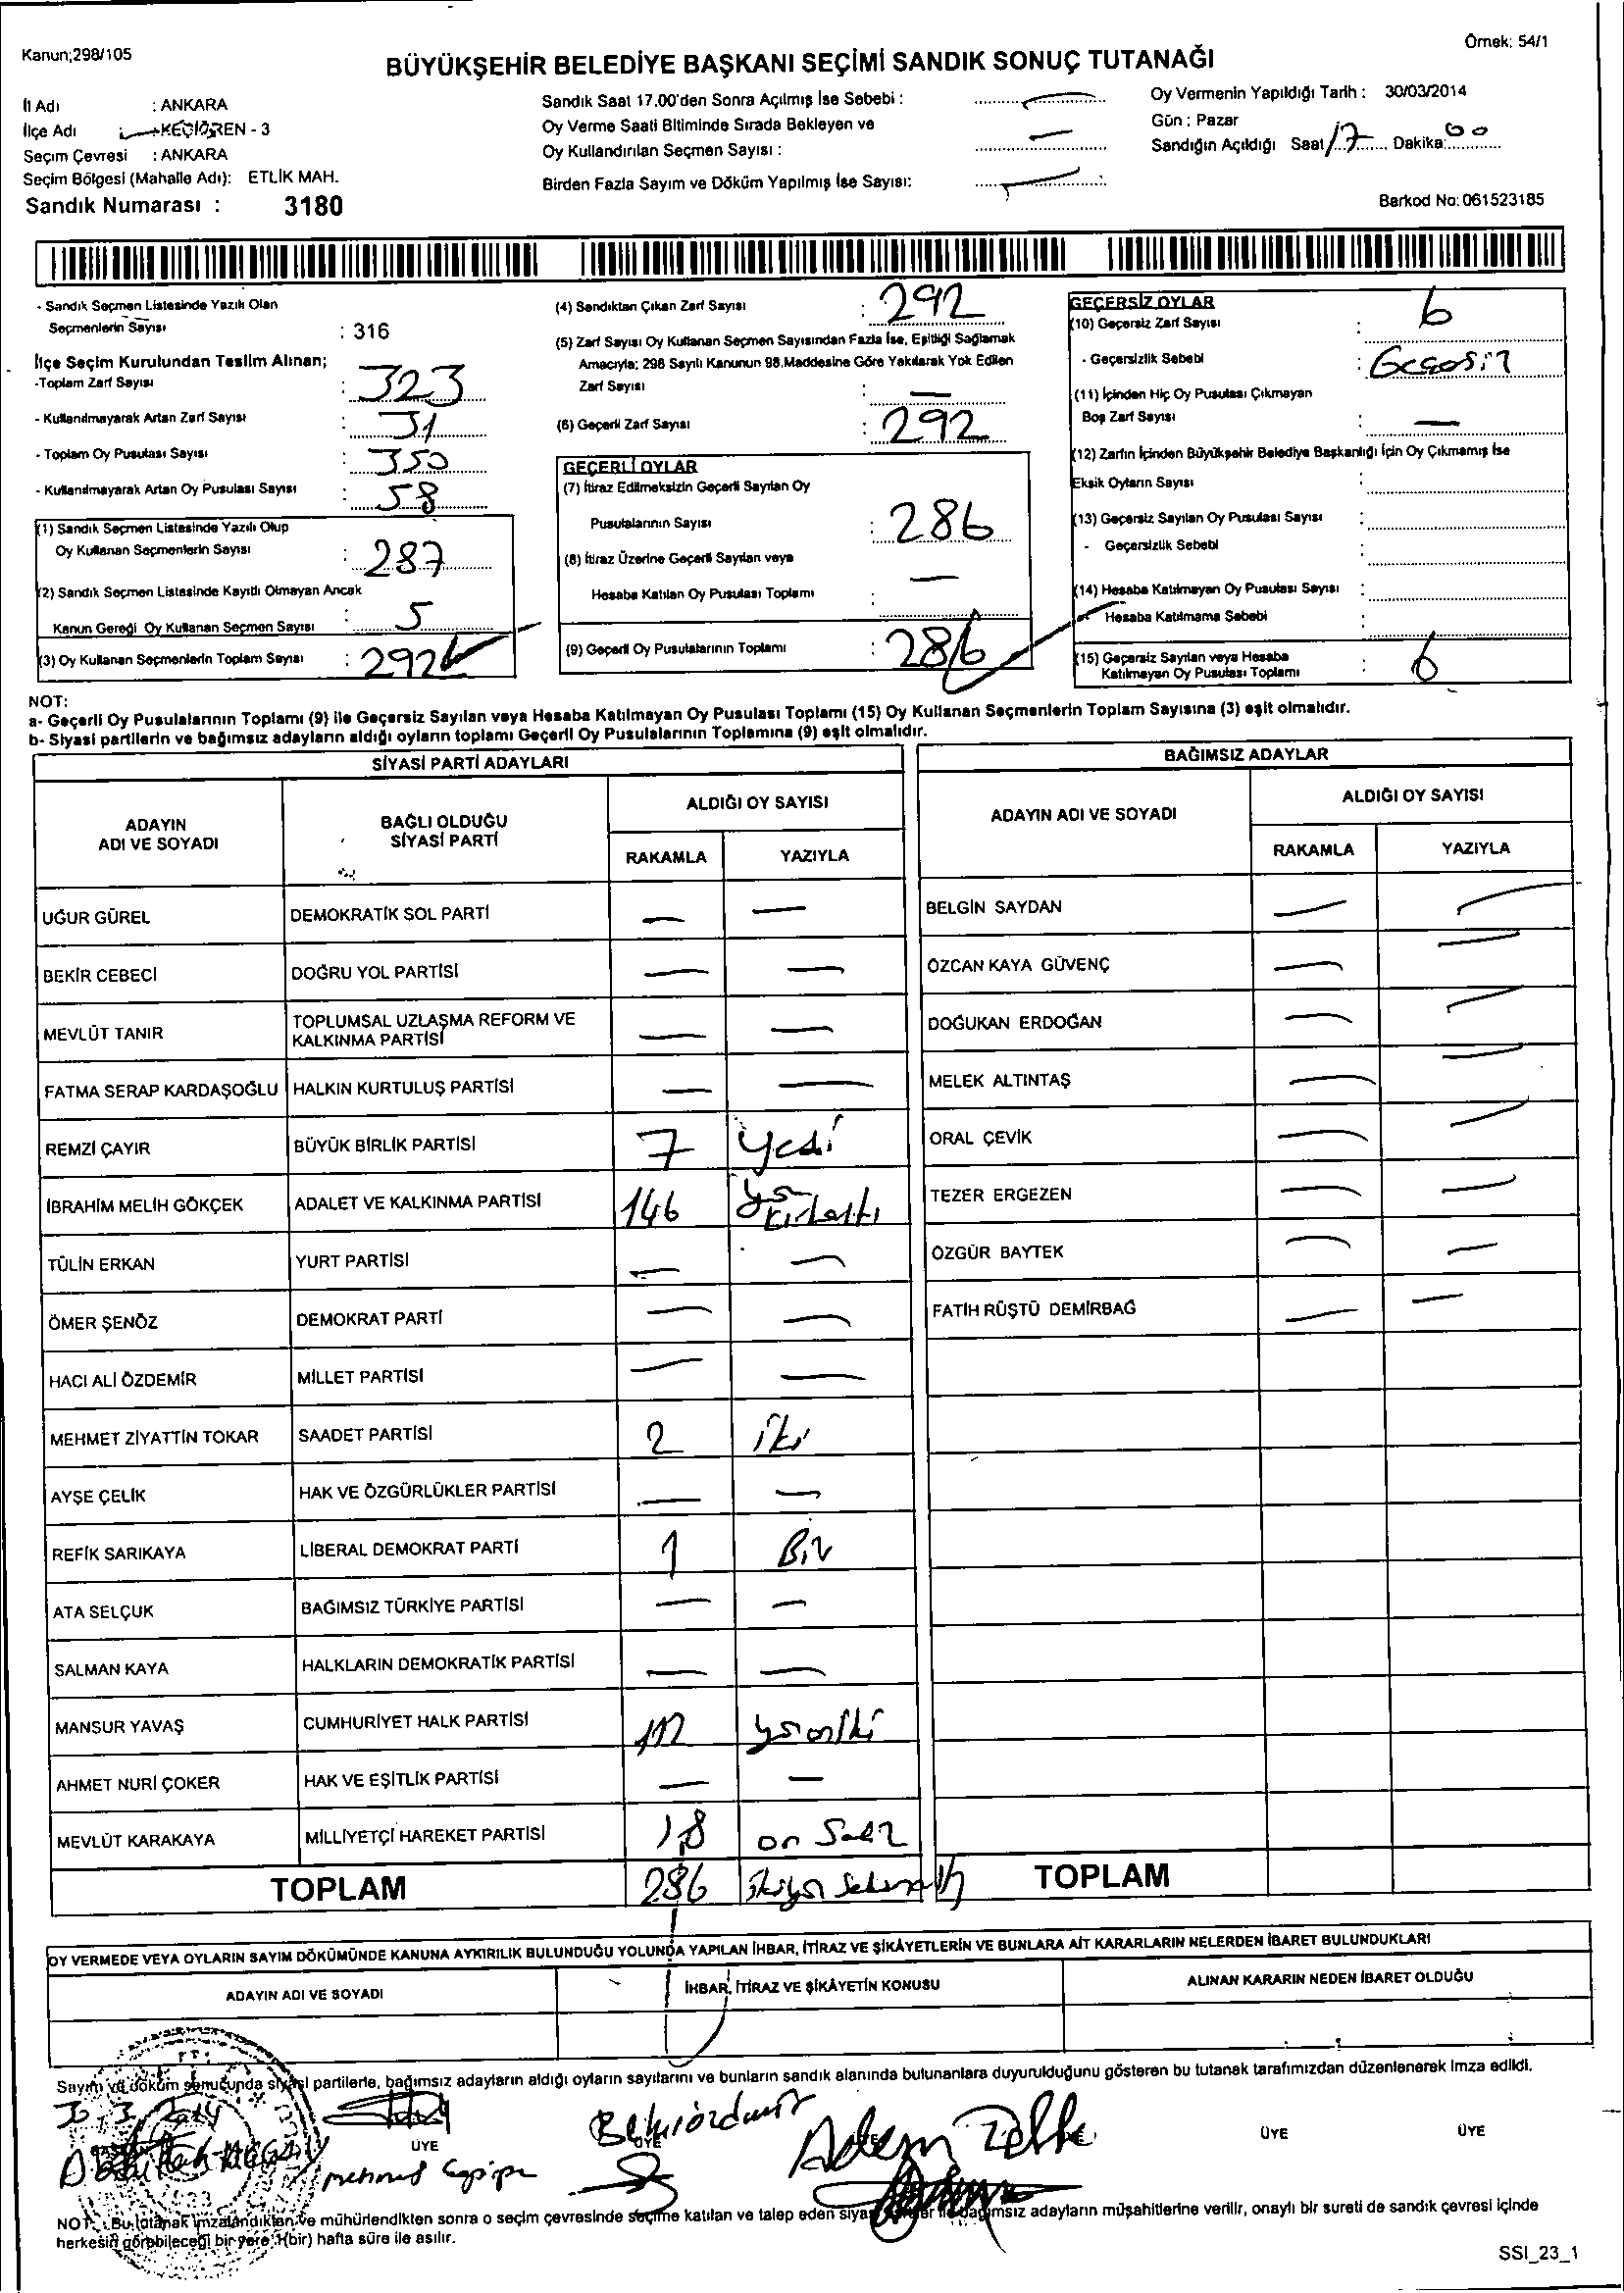 Kanun;298/105
Örnek: 54/1
BÜYÜKŞEHİR BELEDİYE BAŞKANI SEÇİMİ SANDIK SONUÇ TUTANAĞI
İl Adı : ANKARA
İlçe Adı : KEÇİÖREN - 3
Seçim Çevresi : ANKARA
Seçim Bölgesi (Mahalle Adı): ETLİK MAH.
Sandık Numarası : 3180
Sandık Saat 17.00'den Sonra Açılmış İse Sebebi :
Oy Verme Saati Bitiminde Sırada Bekleyen ve
Oy Kullandırılan Seçmen Sayısı :
Birden Fazla Sayım ve Döküm Yapılmış İse Sayısı:
Oy Vermenin Yapıldığı Tarih : 30/03/2014
Gün : Pazar
Sandığın Açıldığı Saat 17 Dakika: 00
Barkod No: 061523185
- Sandık Seçmen Listesinde Yazılı Olan
Seçmenlerin Sayısı : 316
İlçe Seçim Kurulundan Teslim Alınan;
-Toplam Zarf Sayısı : 323
- Kullanılmayarak Artan Zarf Sayısı : 31
- Toplam Oy Pusulası Sayısı : 350
- Kullanılmayarak Artan Oy Pusulası Sayısı : 58
(1) Sandık Seçmen Listesinde Yazılı Olup
Oy Kullanan Seçmenlerin Sayısı : 287
(2) Sandık Seçmen Listesinde Kayıtlı Olmayan Ancak
Kanun Gereği Oy Kullanan Seçmen Sayısı : 5
(3) Oy Kullanan Seçmenlerin Toplam Sayısı : 292
(4) Sandıktan Çıkan Zarf Sayısı : 292
(5) Zarf Sayısı Oy Kullanan Seçmen Sayısından Fazla İse, Eşitliği Sağlamak
Amacıyla; 298 Sayılı Kanunun 98.Maddesine Göre Yakılarak Yok Edilen
Zarf Sayısı : —
(6) Geçerli Zarf Sayısı : 292
GEÇERLİ OYLAR
(7) İtiraz Edilmeksizin Geçerli Sayılan Oy
Pusulalarının Sayısı : 286
(8) İtiraz Üzerine Geçerli Sayılan veya
Hesaba Katılan Oy Pusulası Toplamı : —
(9) Geçerli Oy Pusulalarının Toplamı : 286
GEÇERSİZ OYLAR
(10) Geçersiz Zarf Sayısı : 6
- Geçersizlik Sebebi :
(11) İçinden Hiç Oy Pusulası Çıkmayan
Boş Zarf Sayısı : —
(12) Zarfın İçinden Büyükşehir Belediye Başkanlığı İçin Oy Çıkmamış İse
Eksik Oyların Sayısı :
(13) Geçersiz Sayılan Oy Pusulası Sayısı :
- Geçersizlik Sebebi :
(14) Hesaba Katılmayan Oy Pusulası Sayısı :
Hesaba Katılmama Sebebi :
(15) Geçersiz Sayılan veya Hesaba
Katılmayan Oy Pusulası Toplamı : 6
NOT:
a- Geçerli Oy Pusulalarının Toplamı (9) ile Geçersiz Sayılan veya Hesaba Katılmayan Oy Pusulası Toplamı (15) Oy Kullanan Seçmenlerin Toplam Sayısına (3) eşit olmalıdır.
b- Siyasi partilerin ve bağımsız adayların aldığı oyların toplamı Geçerli Oy Pusulalarının Toplamına (9) eşit olmalıdır.
SİYASİ PARTİ ADAYLARI
ADAYIN ADI VE SOYADI
BAĞLI OLDUĞU SİYASİ PARTİ
ALDIĞI OY SAYISI
RAKAMLA YAZIYLA
UĞUR GÜREL DEMOKRATİK SOL PARTİ — —
BEKİR CEBECİ DOĞRU YOL PARTİSİ — —
MEVLÜT TANIR TOPLUMSAL UZLAŞMA REFORM VE KALKINMA PARTİSİ — —
FATMA SERAP KARDAŞOĞLU HALKIN KURTULUŞ PARTİSİ — —
REMZİ ÇAYIR BÜYÜK BİRLİK PARTİSİ 7 yedi
İBRAHİM MELİH GÖKÇEK ADALET VE KALKINMA PARTİSİ 146 yüz kırkaltı
TÜLİN ERKAN YURT PARTİSİ — —
ÖMER ŞENÖZ DEMOKRAT PARTİ — —
HACI ALİ ÖZDEMİR MİLLET PARTİSİ — —
MEHMET ZİYATTİN TOKAR SAADET PARTİSİ 2 iki
AYŞE ÇELİK HAK VE ÖZGÜRLÜKLER PARTİSİ — —
REFİK SARIKAYA LİBERAL DEMOKRAT PARTİ 1 Bir
ATA SELÇUK BAĞIMSIZ TÜRKİYE PARTİSİ — —
SALMAN KAYA HALKLARIN DEMOKRATİK PARTİSİ — —
MANSUR YAVAŞ CUMHURİYET HALK PARTİSİ 112 yüzoniki
AHMET NURİ ÇOKER HAK VE EŞİTLİK PARTİSİ — —
MEVLÜT KARAKAYA MİLLİYETÇİ HAREKET PARTİSİ 18 on Sekiz
TOPLAM 286
BAĞIMSIZ ADAYLAR
ADAYIN ADI VE SOYADI
ALDIĞI OY SAYISI
RAKAMLA YAZIYLA
BELGİN SAYDAN — —
ÖZCAN KAYA GÜVENÇ — —
DOĞUKAN ERDOĞAN — —
MELEK ALTINTAŞ — —
ORAL ÇEVİK — —
TEZER ERGEZEN — —
ÖZGÜR BAYTEK — —
FATİH RÜŞTÜ DEMİRBAĞ — —
TOPLAM
OY VERMEDE VEYA OYLARIN SAYIM DÖKÜMÜNDE KANUNA AYKIRILIK BULUNDUĞU YOLUNDA YAPILAN İHBAR, İTİRAZ VE ŞİKÂYETLERİN VE BUNLARA AİT KARARLARIN NELERDEN İBARET BULUNDUKLARI
ADAYIN ADI VE SOYADI
İHBAR, İTİRAZ VE ŞİKÂYETİN KONUSU
ALINAN KARARIN NEDEN İBARET OLDUĞU
Sayım ve döküm sonucunda siyasi partilerle, bağımsız adayların aldığı oyların sayılarını ve bunların sandık alanında bulunanlara duyurulduğunu gösteren bu tutanak tarafımızdan düzenlenerek imza edildi.
30.3.2014
ÜYE ÜYE ÜYE ÜYE
Bekir özdemir
Adem
mehmed
NOT: Bu tutanak imzalandıktan ve mühürlendikten sonra o seçim çevresinde seçime katılan ve talep eden siyasi partiler ile bağımsız adayların müşahitlerine verilir, onaylı bir sureti de sandık çevresi içinde
herkesin görebileceği bir yere 1(bir) hafta süre ile asılır.
SSI_23_1